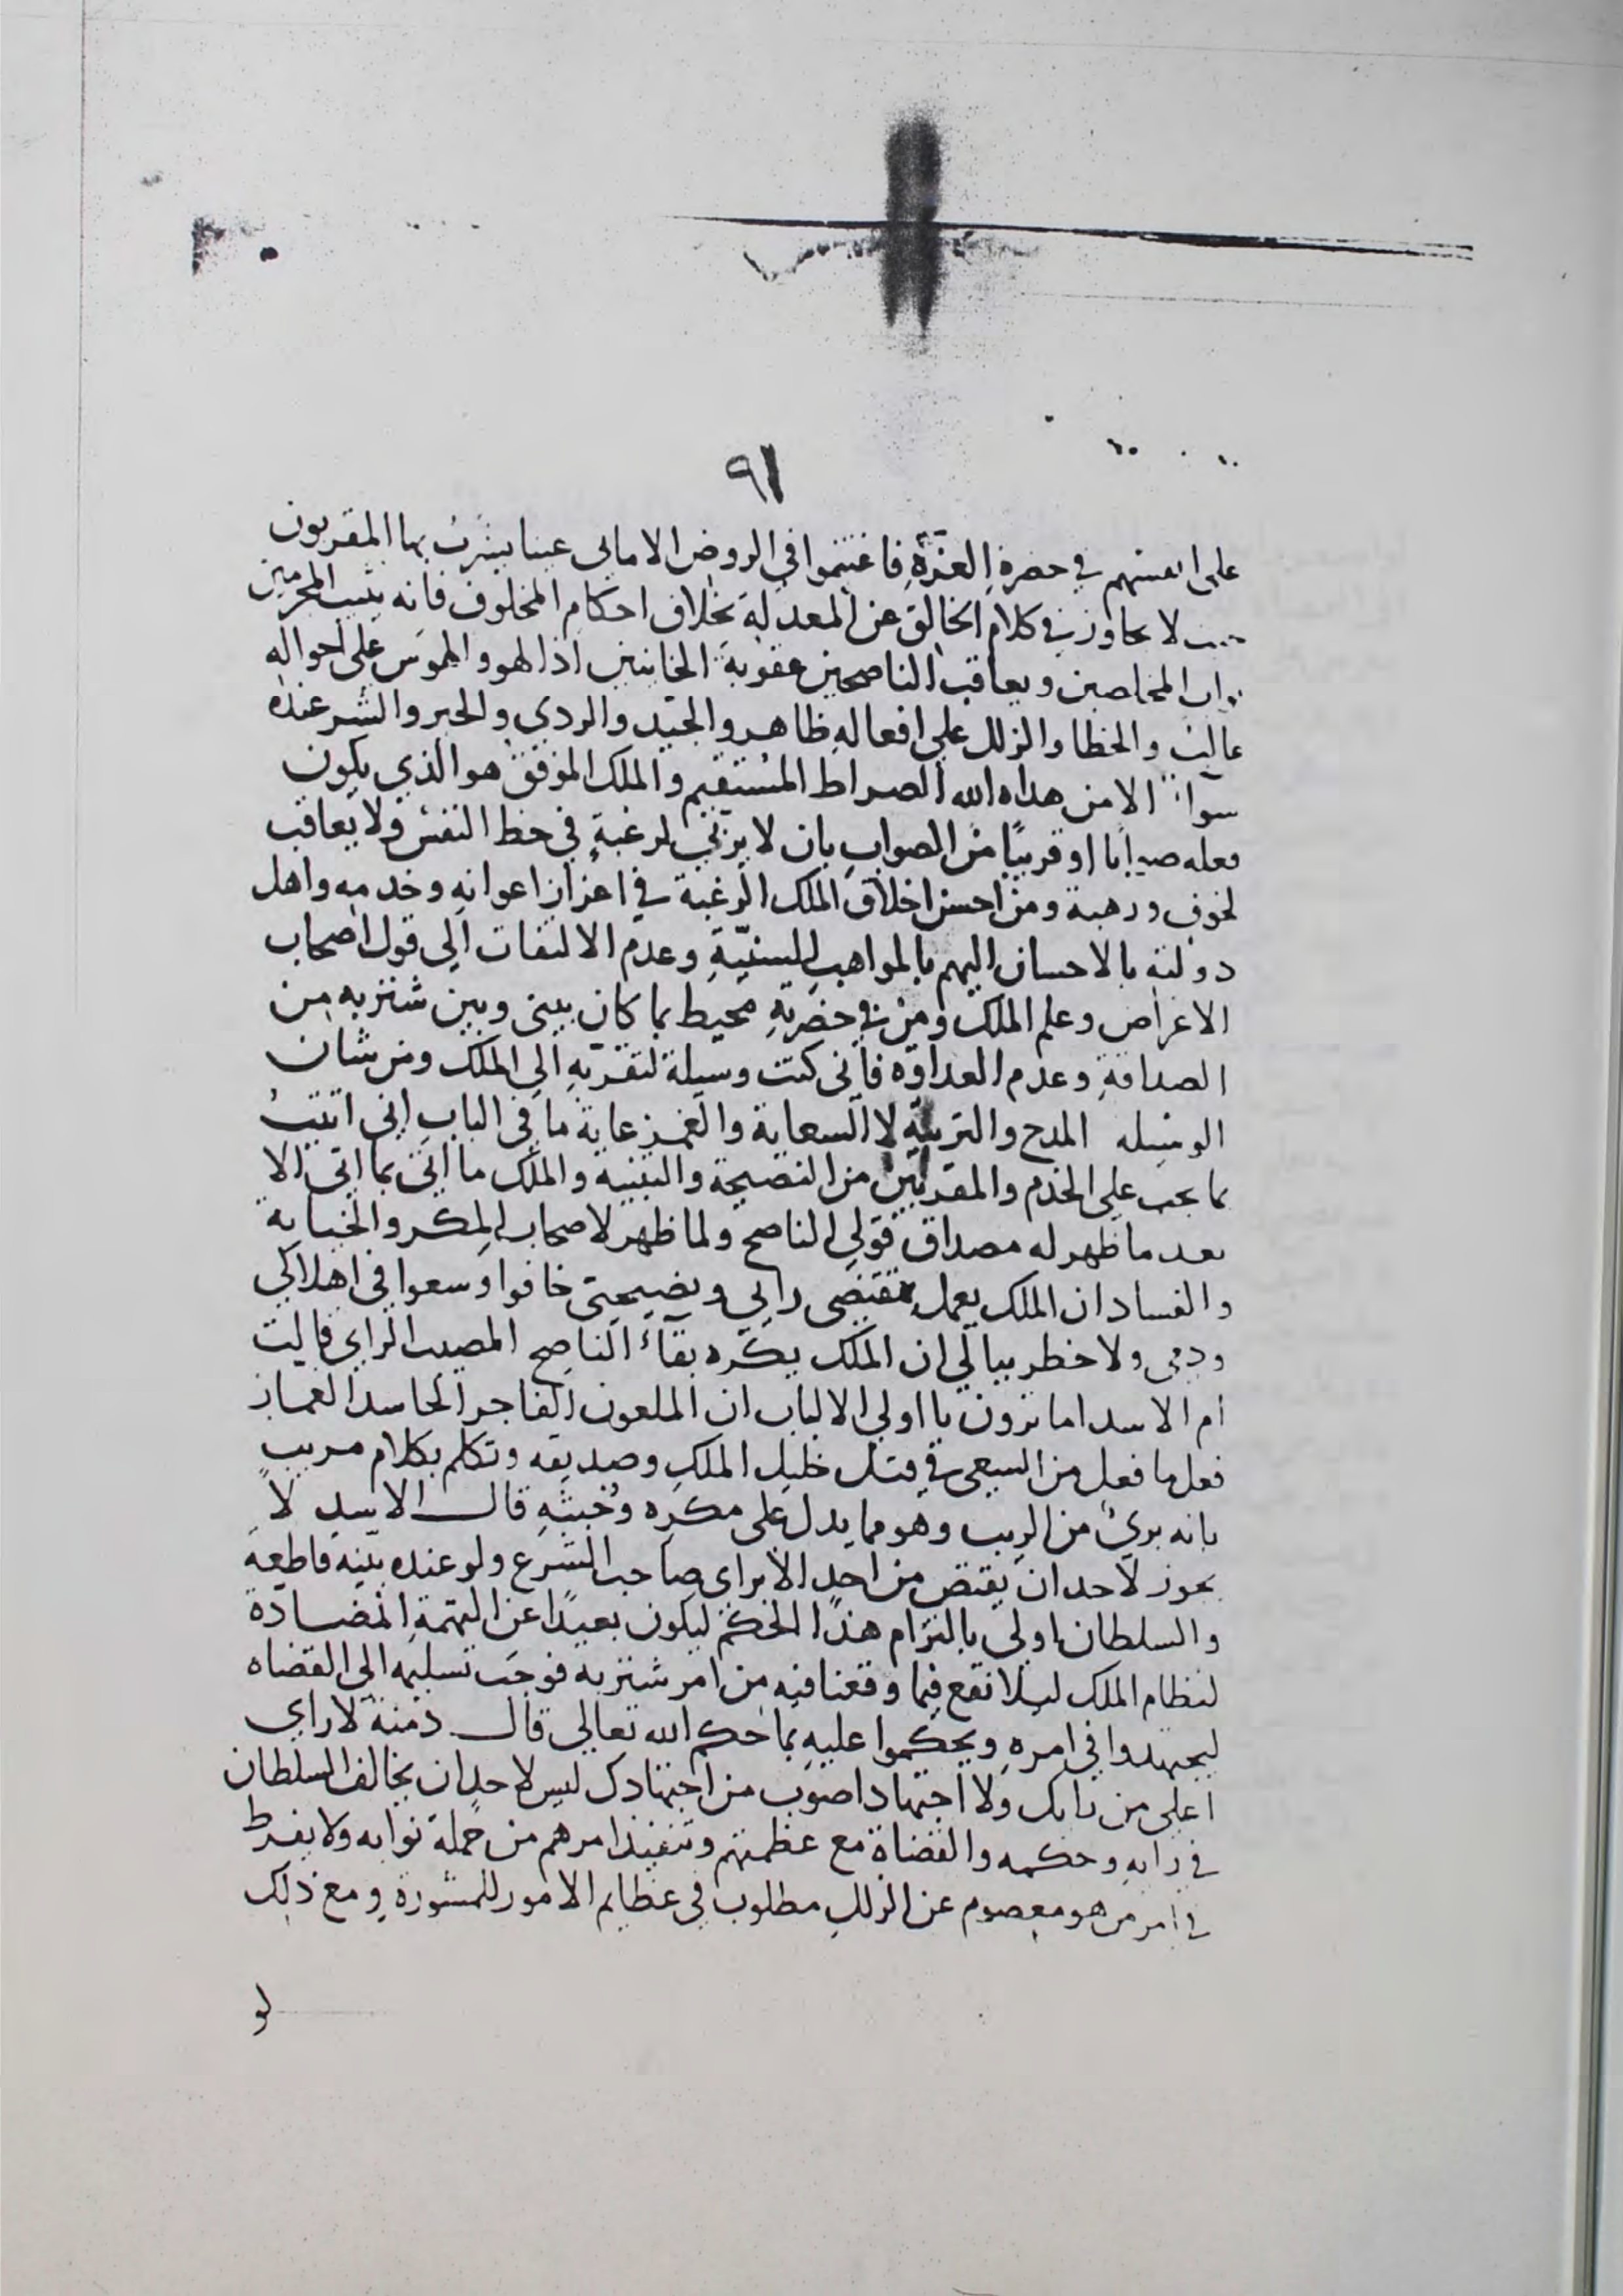 ٩١
على انفسهم في حضرة العزة فاغتنموا في الروض الامالى عينا يشرب بها المقربون
لا يجاوز في كلام الخالق عن المعدلة بخلاف احكام المخلوق فانه يثيب المجرمين
المخلصين ويعاقب الناصحين عقوبة الخاينين اذ الهو والهوس على احواله
غالب والخطا والزلل على افعاله ظاهر والجيد والردي والخير والشر عنده
سواء الا من هداه الله الصراط المستقيم والملك الموفق هو الذي يكون
فعله صوابا او قريبًا من الصواب بان لا يربي لرغبةٍ في حظ النفس ولا يعاقب
لخوف ورهبة ومن احسن اخلاق الملك الرغبة في اعزاز اعوانه وخدمه واهل
دولته بالاحسان اليهم بالمواهب السنيّةِ وعدم الالتفات الى قول اصحاب
الاغراض وعلم الملك ومن في حضرته محيط بما كان بينى وبين شنزبه من
الصداقة وعدم العداوة فانى كنت وسيلة لتقربه الى الملك ومن شان
الوسيله المدح والتربية لا السعاية والغمز غاية ما في الباب انى اتيت
بما يجب على الخدم والمقربين من النصيحة والتنبيه والملك ما اتى بما اتى الا
بعد ما ظهر له مصداق قولى الناصح ولما ظهر لاصحاب المكر والخيانة
والفساد ان الملك يعمل بمقتضى رايى ونصيحتى خافوا وسعوا في اهلاكي
ودمى ولا خطر ببالي ان الملك يكره بقاء الناصح المصيب الراى قالت
ام الاسد اما ترون يا اولي الالباب ان الملعون الفاجر الحاسد الغماز
فعل ما فعل من السعى في قتل خليل الملك وصديقه وتكلم بكلام مريب
بانه برئ من الريب وهو مما يدل على مكره وخبثه قال الاسد لا
يجوز لاحد ان يقتص من احد الا براى صاحب الشرع ولو عنده بينه قاطعة
والسلطان اولى بالتزام هذا الحكم ليكون بعيدًا عن التهمة المضادة
لنظام الملك ليلا نقع فيما وقعنا فيه من امر شنزبه فوجب تسليمه الى القضاه
ليجتهدوا في امره ويحكموا عليه بما حكم الله تعالى قال دمنة لا راي
اعلى من رايك ولا اجتهادا صوب من اجتهادك ليس لاحد ان يخالف السلطان
في رايه وحكمه والقضاة مع عظمتهم وتنفيذ امرهم من جملة نوابه ولا يفرط
في امر من هو معصوم عن الزلل مطلوب في عظايم الامور للمشورة ومع ذلك
لو